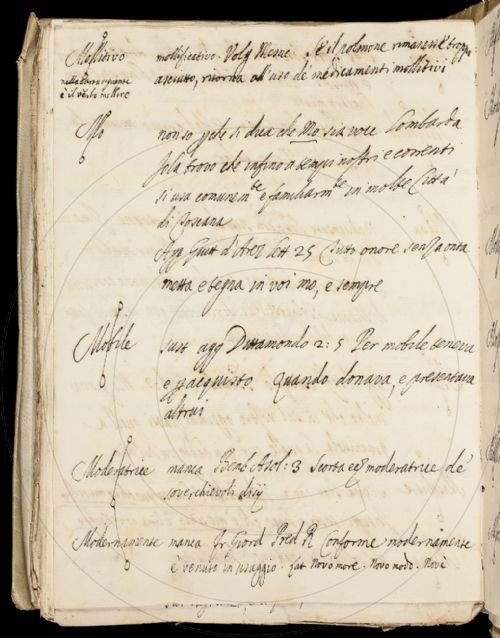 Mollitivo mollificativo. Volg Mesue. Se il polmone rimanesse troppo
asciutto, ritorna all'uso de medicamenti mollitivi
nella
è il verbo mollire
Mo non so pche si dica che Mo sia voce Lombarda
sola trovo che infino a tempi nostri e correnti
si usa comunemte e familiarmte in molte Citta'
di Toscana
Agg Guitt d'Arez lett 25 Tutto onore senza onta
netta e segna in voi mo, e sempre
Mobile sust agg Dittamondo 2: 5 Per mobile teneva
e p acquisto, quando donava, e presentava
altrui
Moderatrice manca Bemb Asol: 3 Scorta e moderatrice de'
soverchievoli disij
Modernamente manca Fr Giord Pred R Conforme modernamente
è venuto in usaggio. Lat Novo more. Novo modo. Nove